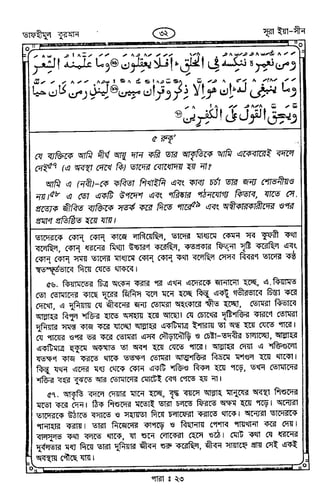 তাফহীমুল কুরআন
৩২
সূরা ইয়া-সীন
وَمَنْ نُّعَمِّرْهُ نُنَكِّسْهُ فِي الْخَلْقِ ۖ أَفَلَا يَعْقِلُونَ ۝ وَمَا عَلَّمْنٰهُ الشِّعْرَ
وَمَا يَنْۢبَغِي لَهٗ ۗ إِنْ هُوَ إِلَّا ذِكْرٌ وَّقُرْاٰنٌ مُّبِيْنٌ ۝ لِّيُنْذِرَ مَنْ كَانَ حَيًّا
وَّيَحِقَّ الْقَوْلُ عَلَى الْكٰفِرِيْنَ ۝
৫ রুকূ’
যে ব্যক্তিকে আমি দীর্ঘ আয়ু দান করি তার আকৃতিকে আমি একেবারেই বদলে
দেই৫৭ (এ অবস্থা দেখে কি) তাদের বোধোদয় হয় না?
আমি এ (নবী)-কে কবিতা শিখাইনি এবং কাব্য চর্চা তার জন্য শোভনীয়ও
নয়।৫৮ এ তো একটি উপদেশ এবং পরিষ্কার পঠনযোগ্য কিতাব, যাতে সে
প্রত্যেক জীবিত ব্যক্তিকে সতর্ক করে দিতে পারে৫৯ এবং অস্বীকারকারীদের ওপর
প্রমাণ প্রতিষ্ঠিত হয়ে যায়।
তাদেরকে কোন্ কোন্ কাজে লাগিয়েছিল, তাদের মাধ্যমে কেমন সব কুফরী কথা
বলেছিল, কোন্ ধরনের মিথ্যা উচ্চারণ করেছিল, কতপ্রকার ফিত্‌না সৃষ্টি করেছিল এবং
কোন্ কোন্ সময় তাদের মাধ্যমে কোন্ কোন্ কথা বলেছিল সেসব বিবরণ তাদের কণ্ঠ
স্বতস্ফূর্তভাবে দিয়ে যেতে থাকবে।
৫৬. কিয়ামতের চিত্র অংকন করার পর এখন এদেরকে জানানো হচ্ছে, এ কিয়ামত
তো তোমাদের কাছে দূরের জিনিস বলে মনে হচ্ছে কিন্তু একটু গভীরভাবে চিন্তা করে
দেখো, এ দুনিয়ায় যে জীবনের জন্য তোমরা অহংকারে স্ফীত হচ্ছো, তোমরা কিভাবে
আল্লাহর বিপুল শক্তির হাতে অসহায় হয়ে আছো। যে চোখের দৃষ্টিশক্তির কারণে তোমরা
দুনিয়ার সমস্ত কাজ করে যাচ্ছো আল্লাহর একটিমাত্র ইশারায় তা অন্ধ হয়ে যেতে পারে।
যে পায়ের ওপর ভর করে তোমরা এসব দৌড়াদৌড়ি ও চেষ্টা-তদবীর চালাচ্ছো, আল্লাহর
একটিমাত্র হুকুমে অকস্মাত তা অবশ হয়ে যেতে পারে। আল্লাহর দেয়া এ শক্তিগুলো
যতক্ষণ কাজ করতে থাকে ততক্ষণ তোমরা আত্মশক্তির বিভ্রমে মশগুল হয়ে থাকো।
কিন্তু যখন এদের মধ্য থেকে কোন একটি শক্তিও বিকল হয়ে পড়ে, তখন তোমাদের
শক্তির বহর বুঝতে আর তোমাদের মোটেই বেগ পেতে হয় না।
৫৭. আকৃতি বদলে দেয়ার মানে হচ্ছে, বৃদ্ধ বয়সে আল্লাহ মানুষের অবস্থা শিশুদের
মতো করে দেন। ঠিক শিশুদের মতোই তারা চলতে ফিরতে অক্ষম হয়ে পড়ে। অন্যেরা
তাদেরকে উঠাতে বসাতে ও সহায়তা দিয়ে চলাফেরা করাতে থাকে। অন্যেরা তাদেরকে
পানাহার করায়। তারা নিজেদের কাপড়ে ও বিছানায় পেশাব পায়খানা করে দেয়।
বালসুলভ কথা বলতে থাকে, যা শুনে লোকেরা হেসে ওঠে। মোট কথা যে ধরনের
দুর্বলতার মধ্য দিয়ে তারা দুনিয়ার জীবন শুরু করেছিল, জীবন সায়াহ্নে প্রায় সেই একই
অবস্থায় পৌঁছে যায়।
পারা : ২৩